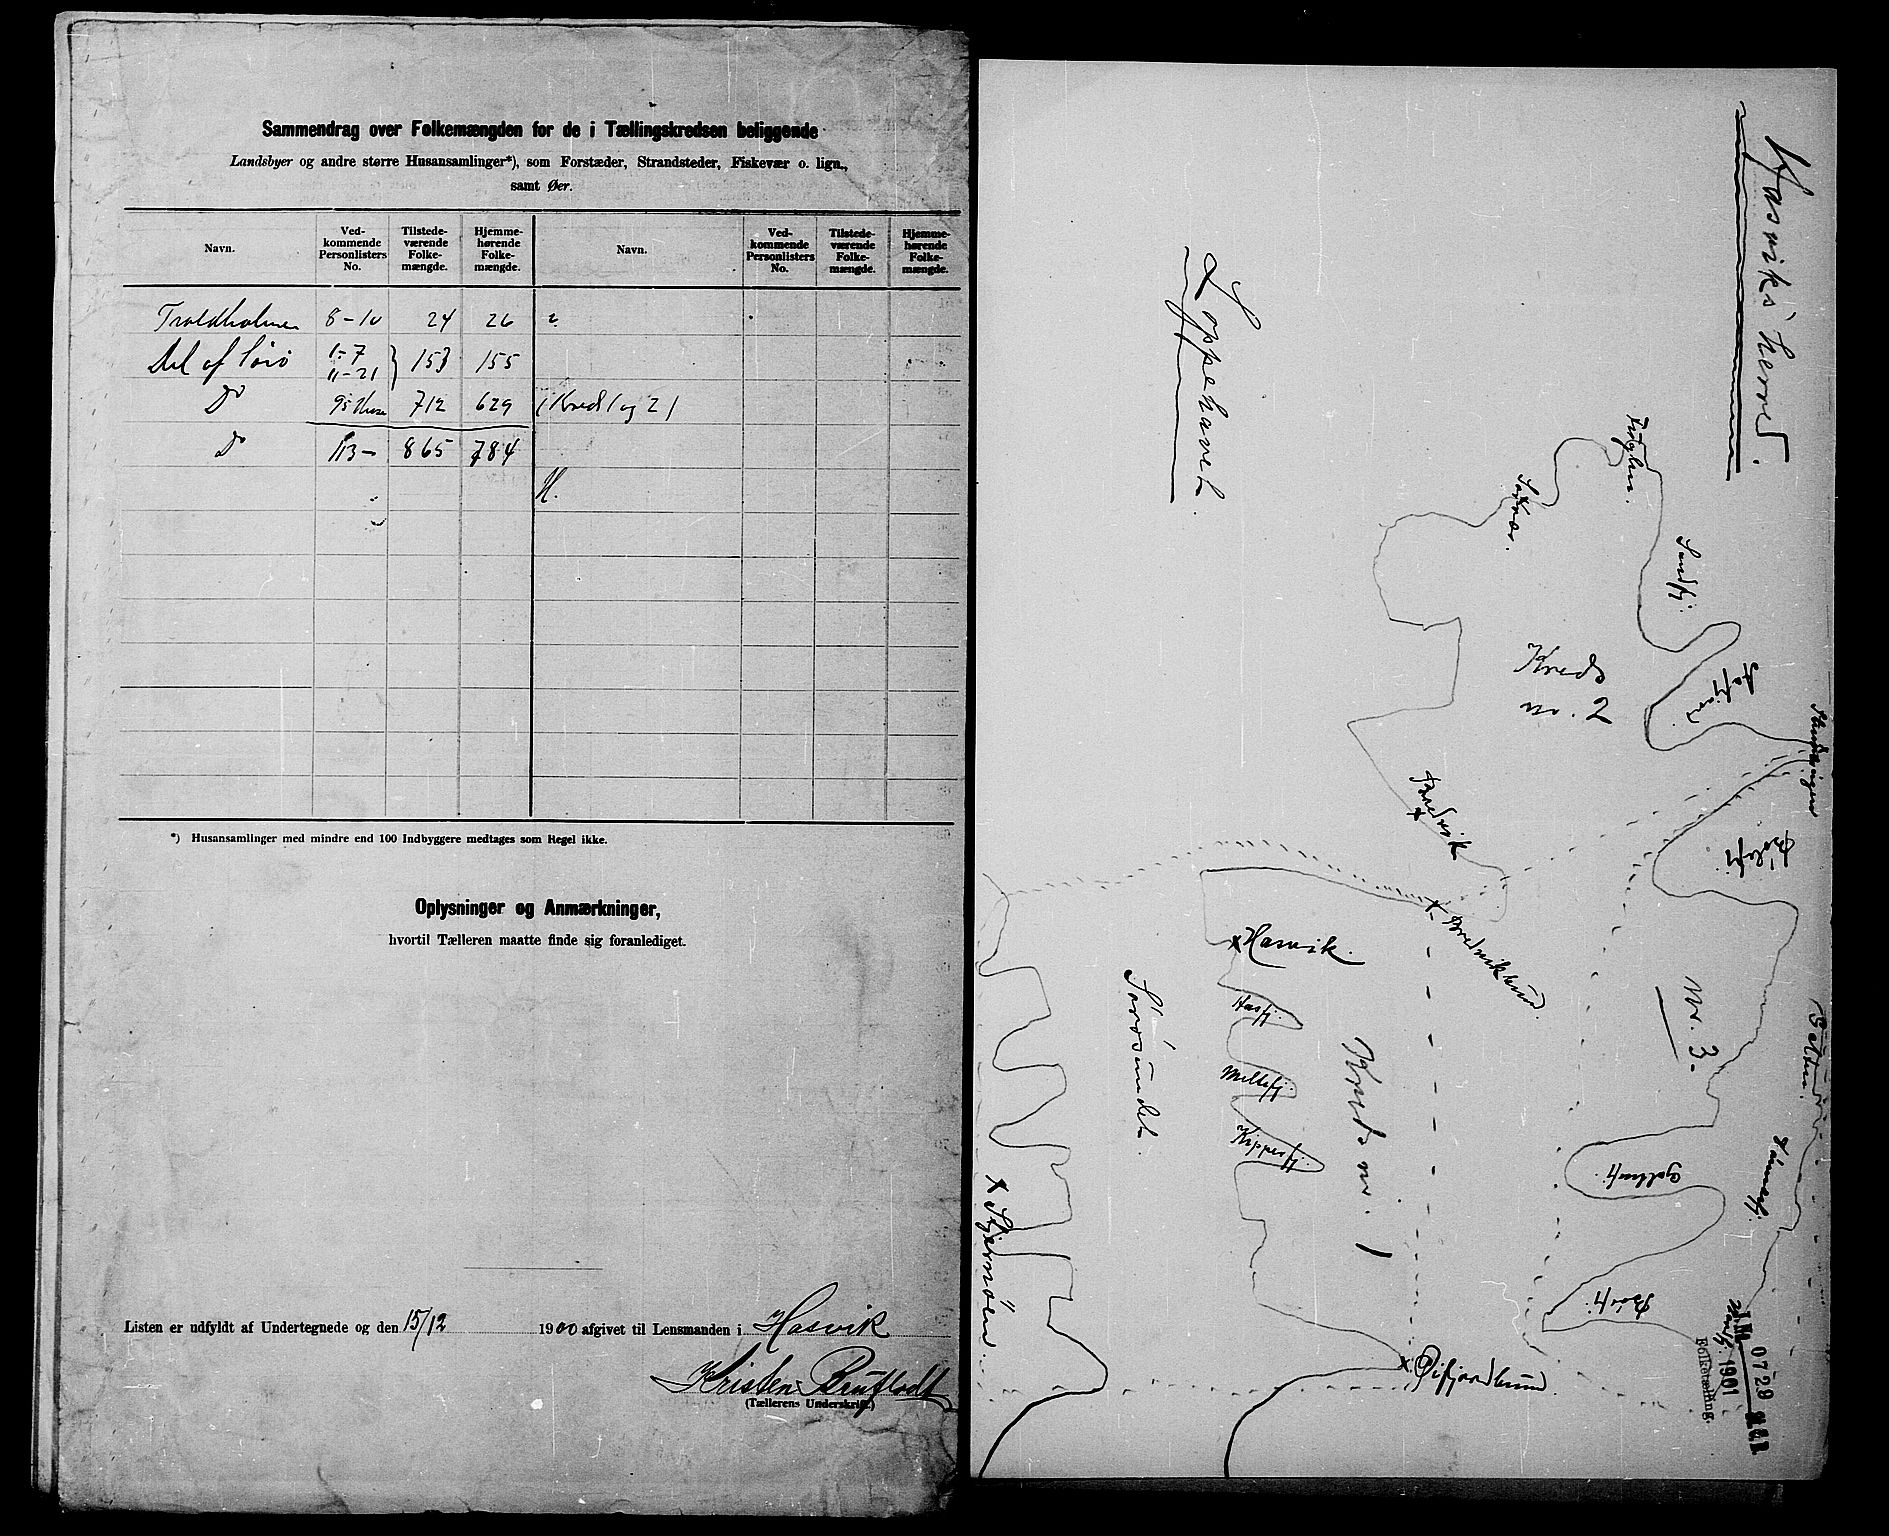 Sammendrag over Folkemængden for de i Tællingskredsen beliggende
Landsbyer og andre større Husansamlinger*), som Forstæder, Strandsteder, Fiskevær o. lign.,
samt Øer.
Navn. Ved-kommende Personlisters No. Tilstede-værende Folke-mængde. Hjemme-hørende Folke-mængde. Navn. Ved-kommende Personlisters No. Tilstede-værende Folke-mængde. Hjemme-hørende Folke-mængde.
Troldholmen 8-10 24 26
Del af Sörö 1-7 11-21 } 153 155
Do 92 Huse 712 629 (Kreds 1 og 2)
Do 113 - 865 784
H.
*) Husansamlinger med mindre end 100 Indbyggere medtages som Regel ikke.
Oplysninger og Anmærkninger,
hvortil Tælleren maatte finde sig foranlediget.
Listen er udfyldt af Undertegnede og den 15/12 1900 afgivet til Lensmanden i Hasvik
Kristen Brufladt
(Tællerens Underskrift.)
Hasviks herred.
Loppehavet.
Sörvær.
Sandfj.
Kreds
nr. 2
Bredvik
Bredvikbund.
Hasvik.
Hasfj.
Meltefj.
Kippefj.
Sörösundet.
Kreds nr. 1
Nr. 3.
Galten.
Galtefj.
Stjernöen.
Öifjordbund.
0729
1901
Folketælling.